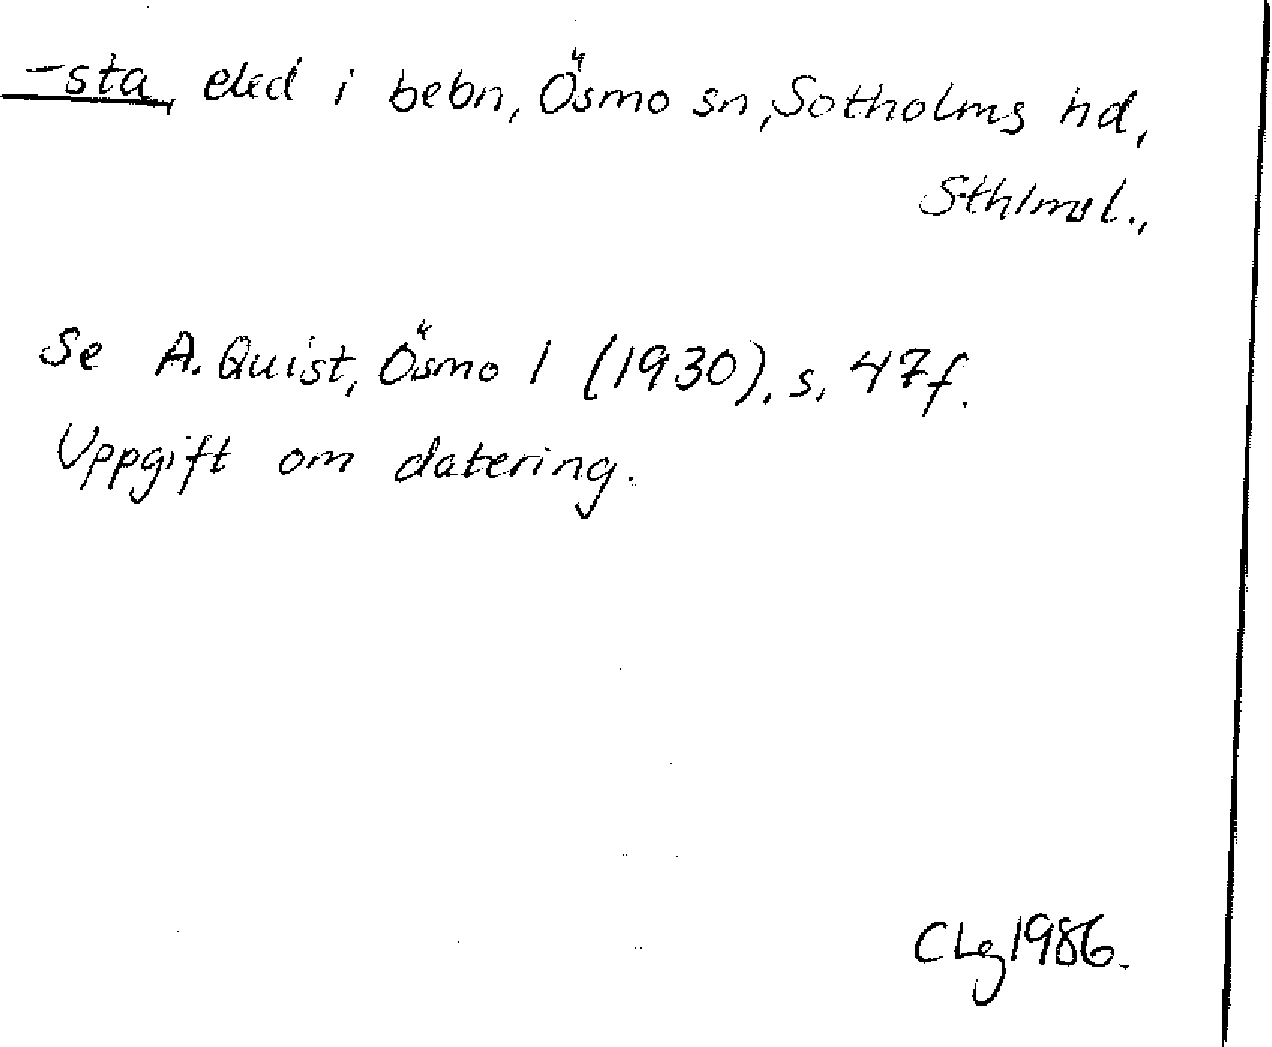 -sta, eled i bebn, Ösmo sn, Sotholms hd,
Sthlmsl.,
Se A. Quist, Ösmo 1 (1930), s, 47f.
Uppgift om datering.
CLg 1986.